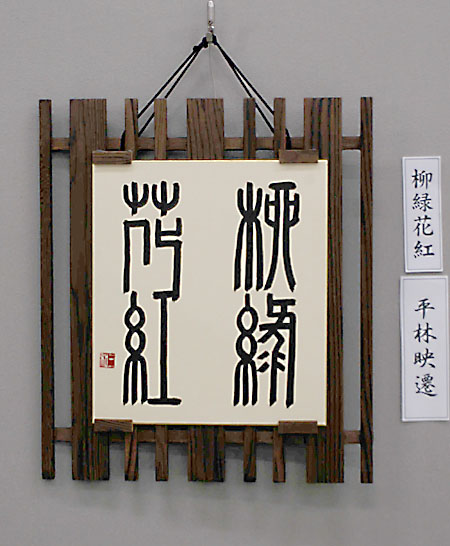 柳緑
花紅
柳緑花紅
平林映遷